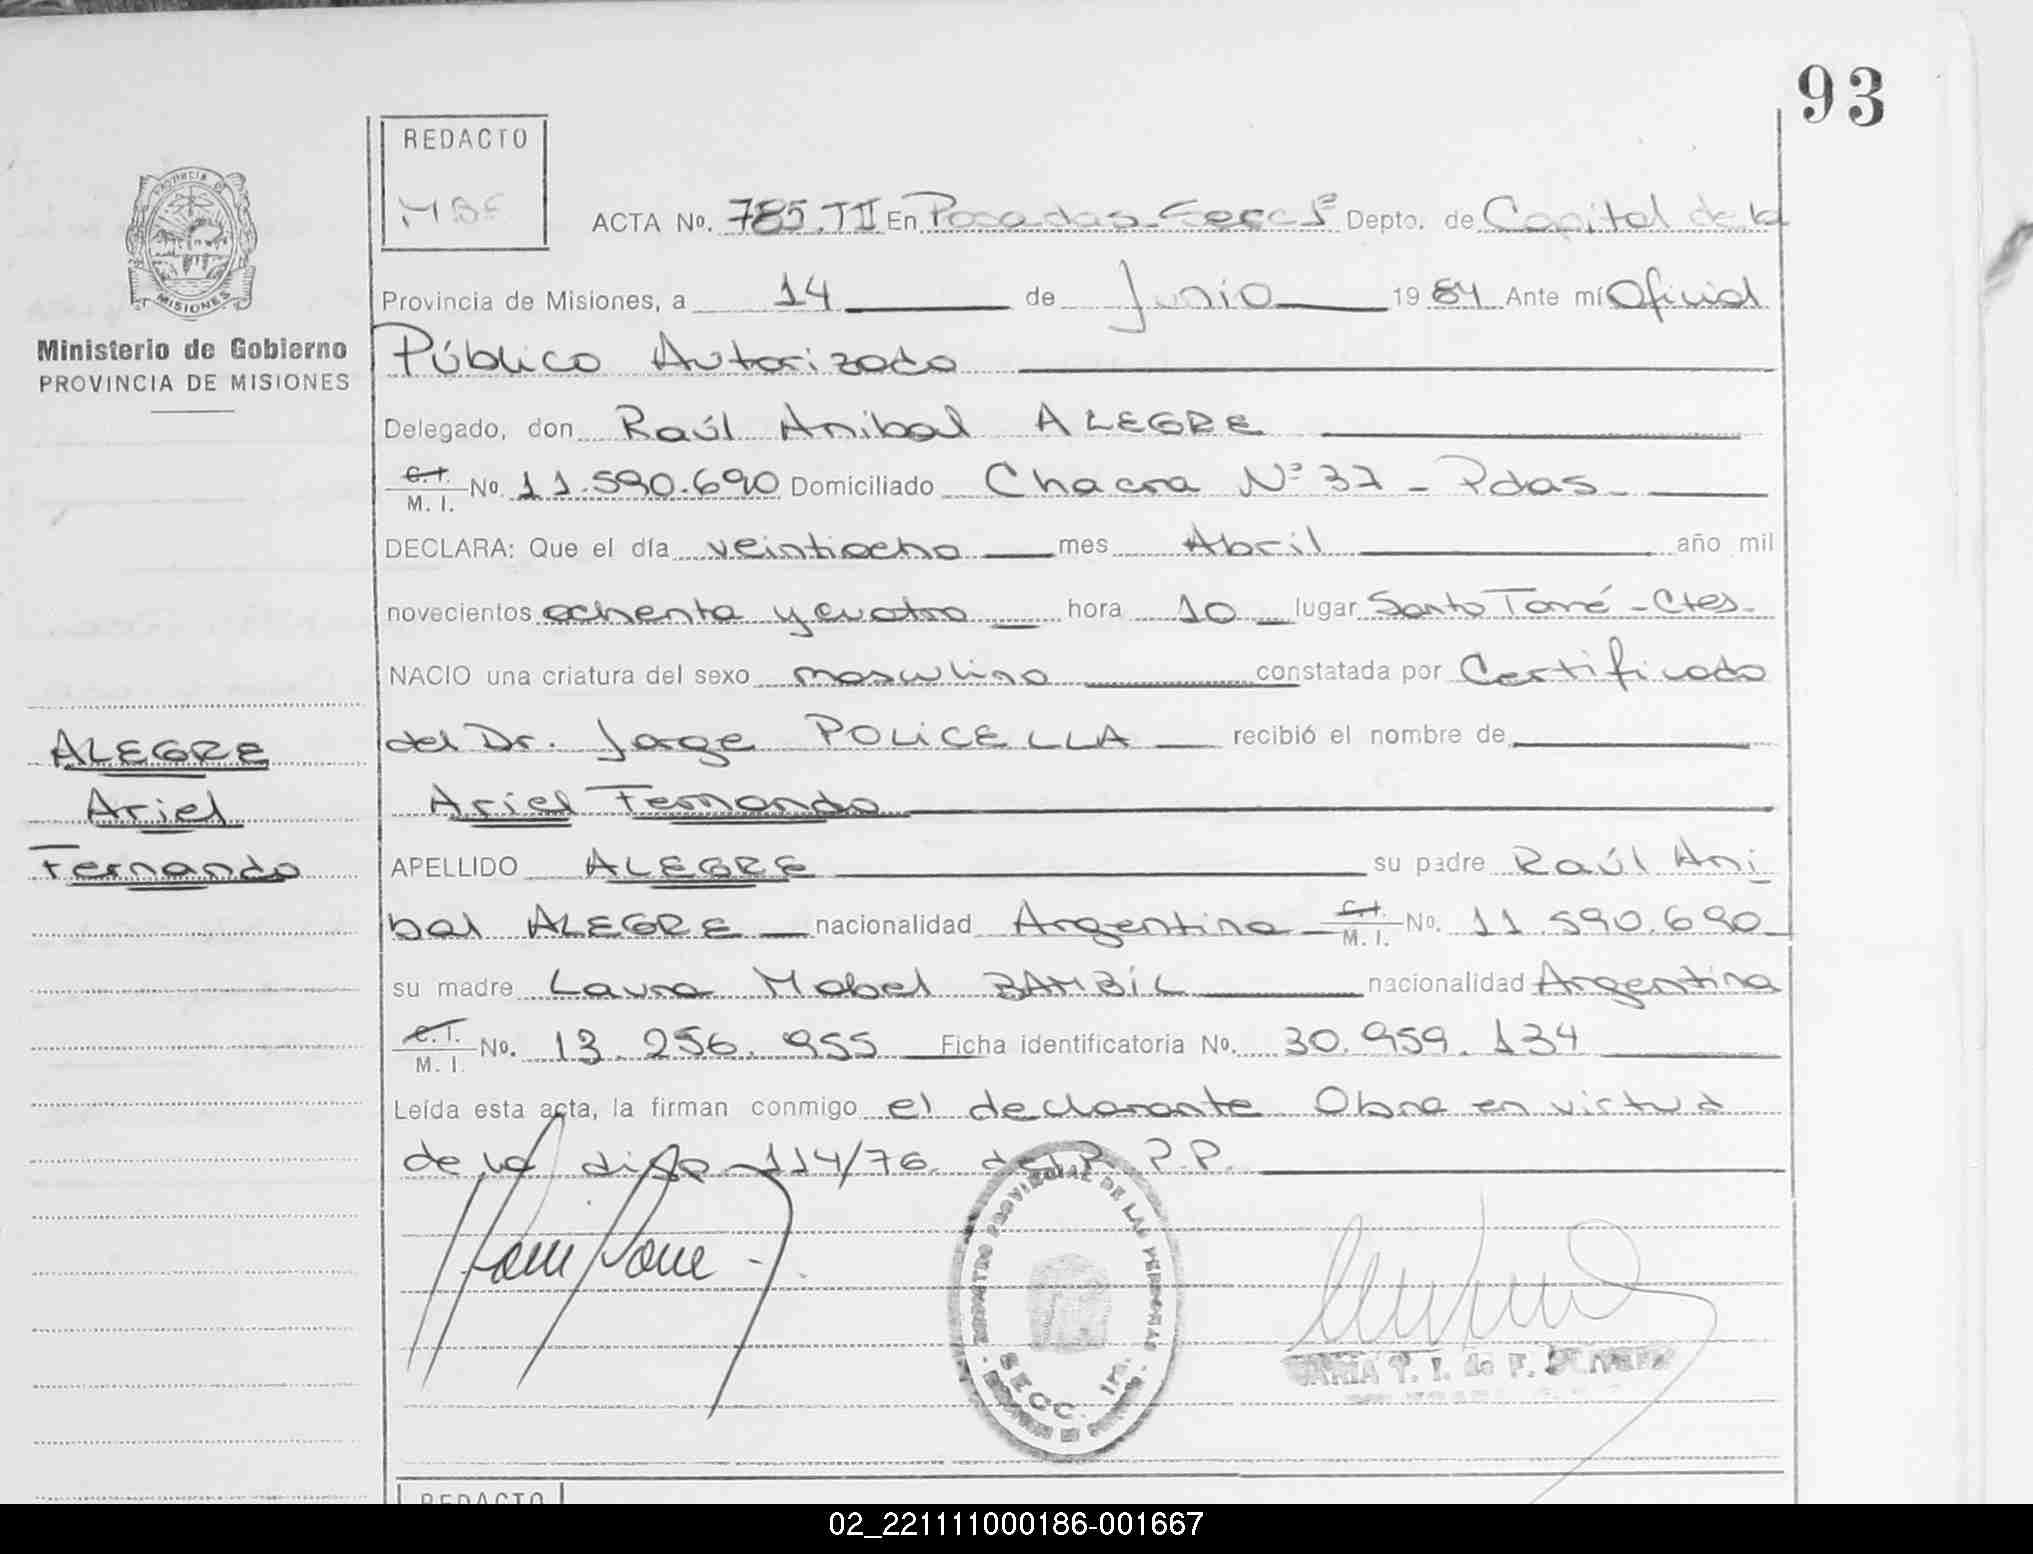 93
REDACTO
MBF
ACTA No. 785.TII En Posadas-Secc 1ª Depto. de Capital de la
PROVINCIA DE
MISIONES
Provincia de Misiones, a 14 de Junio 1984 Ante mí Oficial
Ministerio de Gobierno
PROVINCIA DE MISIONES
Público Autorizado
Delegado, don Raúl Anibal ALEGRE
C.I. M. I. No. 11.590.690 Domiciliado Chacra Nº 37 - Pdas -
DECLARA: Que el día veintiocho mes Abril año mil
novecientos ochenta y cuatro hora 10 lugar Santo Tomé - Ctes -
NACIO una criatura del sexo masculino constatada por Certificado
del Dr. Jorge POLICELLA recibió el nombre de
ALEGRE
Ariel
Fernando
Ariel Fernando
APELLIDO ALEGRE su padre Raúl Ani
bal ALEGRE nacionalidad Argentina C.I. M. I. No. 11.590.690
su madre Laura Mabel BAMBIL nacionalidad Argentina
C.I. M. I. No. 13.256.955 Ficha identificatoria No. 30.959.134
Leída esta acta, la firman conmigo el declarante Obra en virtud
de la disp 114/76 del R.P.P.
REGISTRO PROVINCIAL DE LAS PERSONAS
SECC. 1ra.
MARIA T. I. de F. OLIVERA
REDACTO
02_221111000186-001667